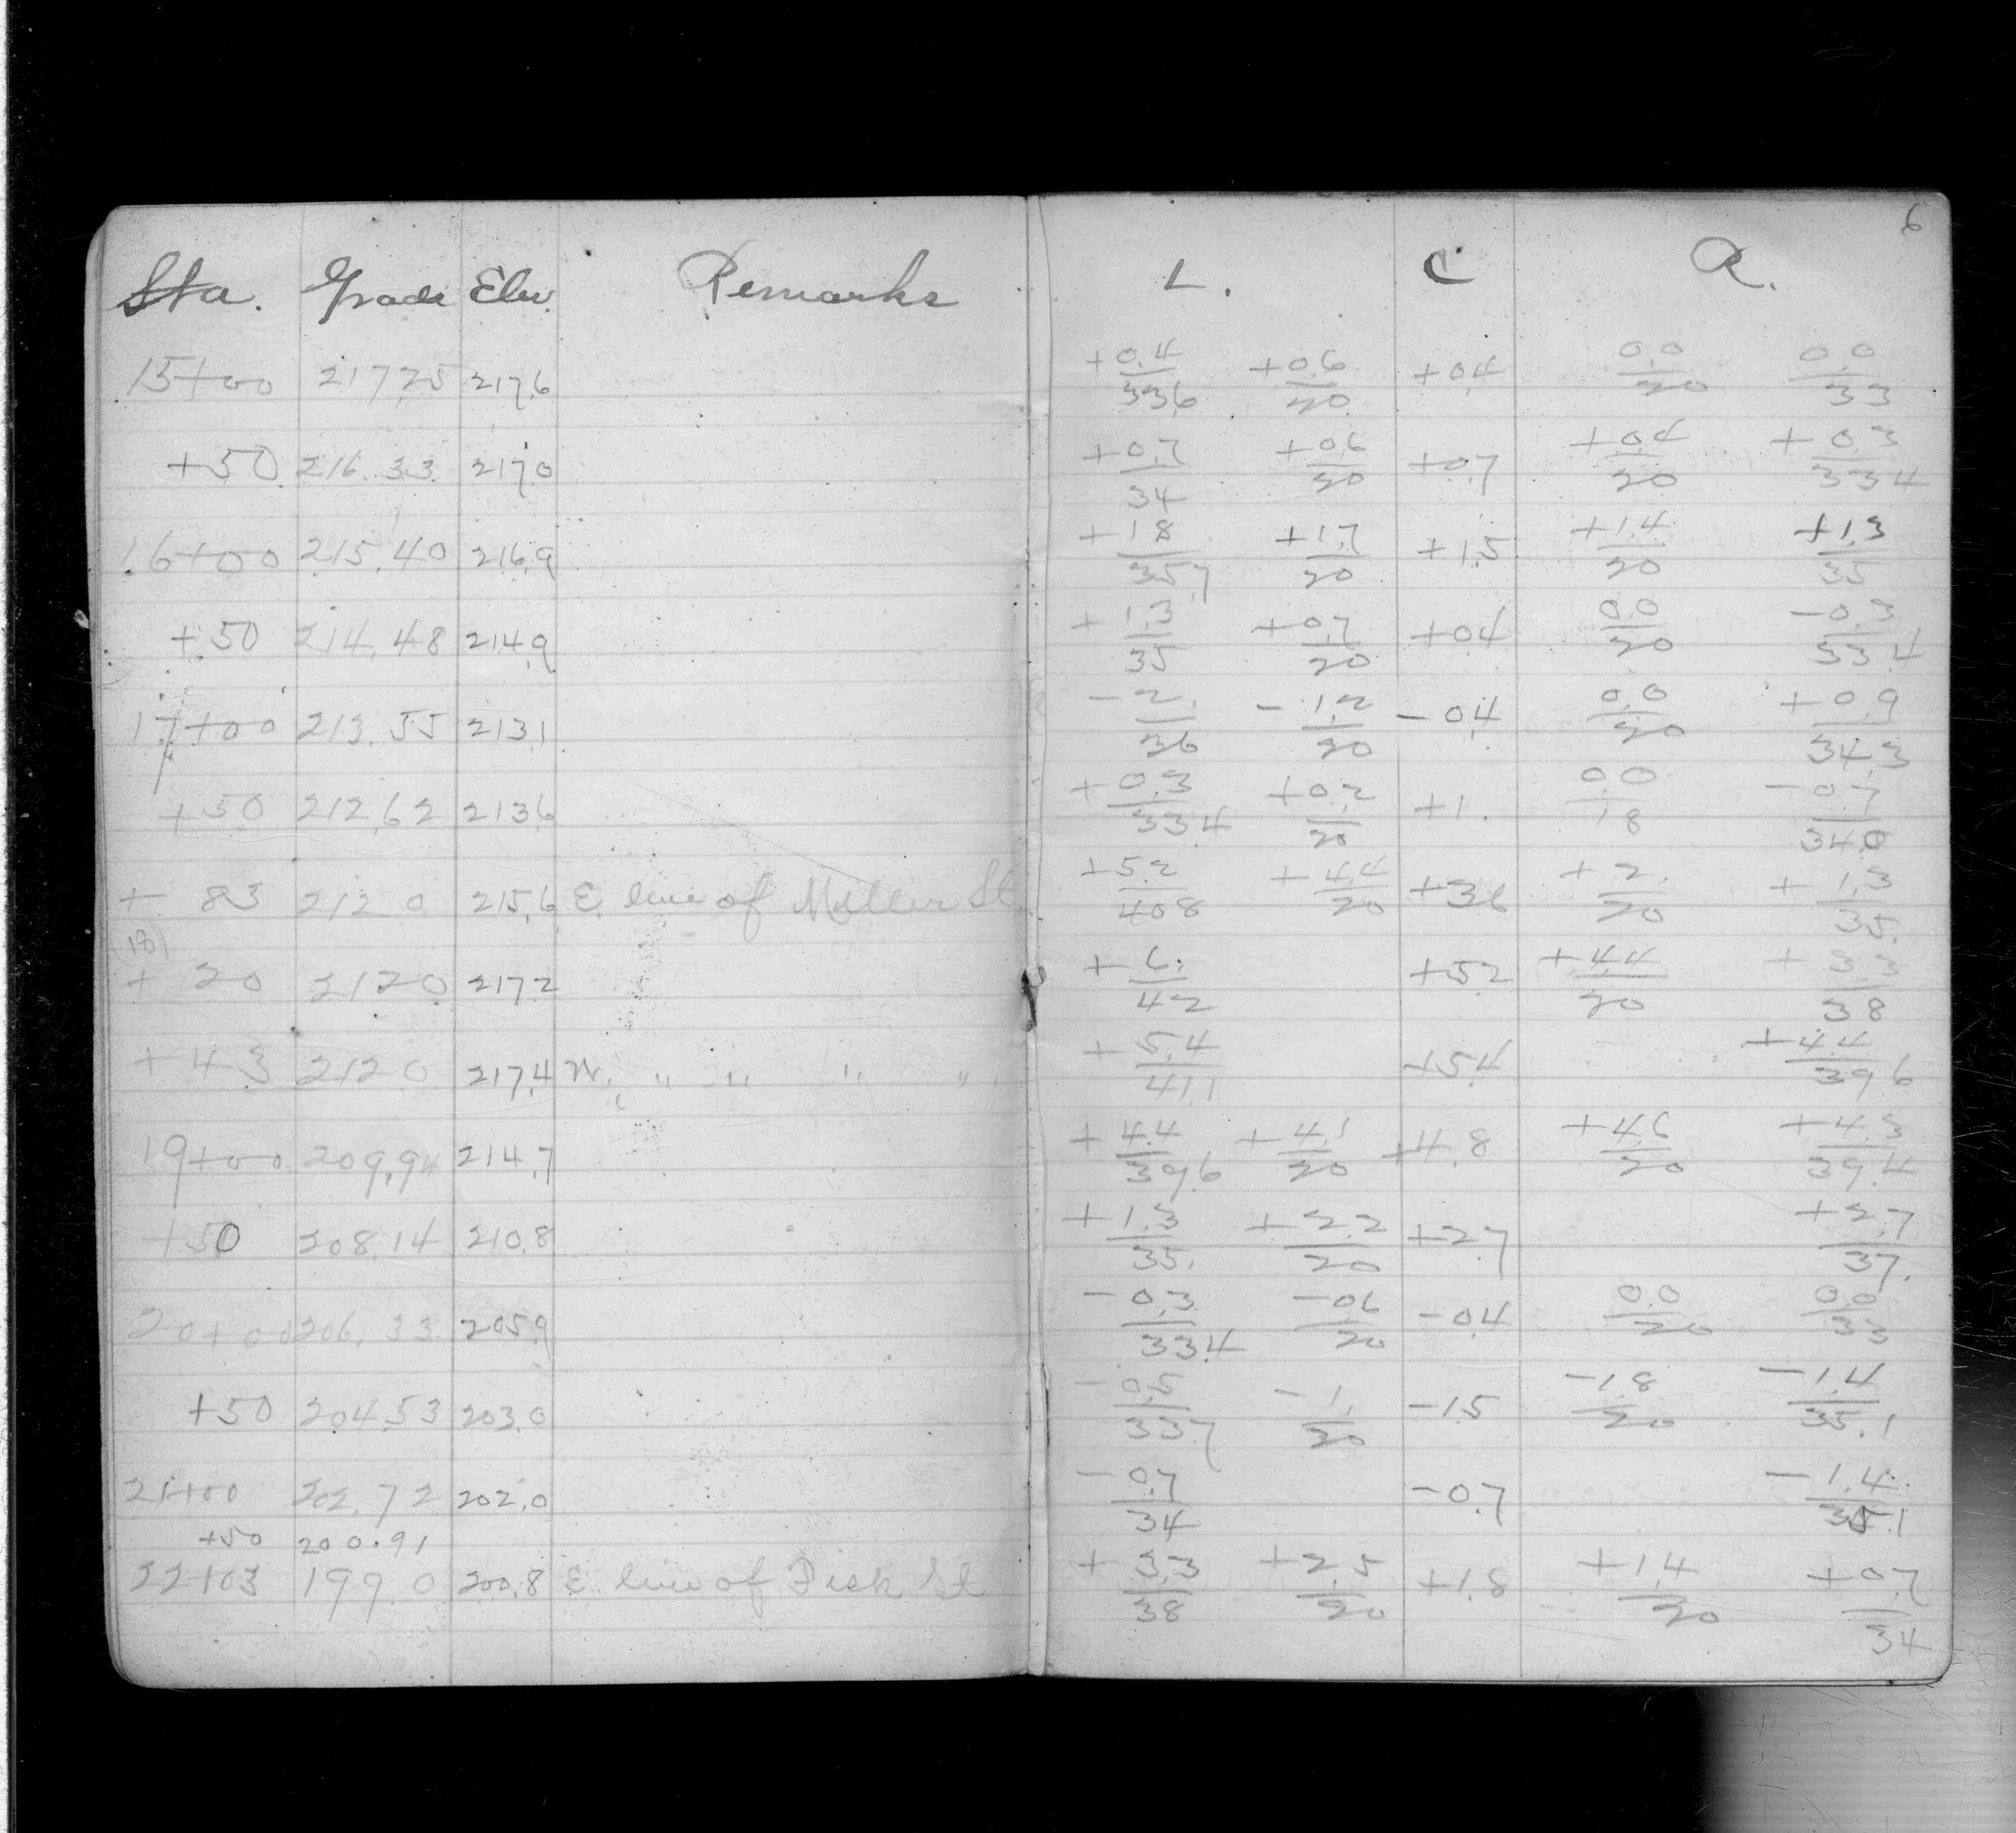 6
Sta. Grade Elev. Remarks L. C R.
15+00 217.25 217.6 +0.4/33.6 +0.6/20 +0.4 0.0/20 0.0/33
+50 216.33 217.0 +0.7/34 +0.6/20 +0.7 +0.4/20 +0.3/33.4
16+00 215.40 216.9 +1.8/35.7 +1.7/20 +1.5 +1.4/20 +1.3/35
+50 214.48 214.9 +1.3/35 +0.7/20 +0.4 0.0/20 -0.3/33.4
17+00 213.55 213.1 -2./36 -1.2/20 -0.4 0.0/20 +0.9/34.3
+50 212.62 213.6 +0.3/33.4 +0.2/20 +1. 0.0/18 -0.7/34.0
+83 212.0 215.6 E. line of Miller St +5.2/40.8 +4.4/20 +3.6 +2./20 +1.3/35.
(18)
+20 212.0 217.2 +6./42 +5.2 +4.4/20 +3.3/38
+43 212.0 217.4 W. " " " " +5.4/41.1 +5.4 +4.4/39.6
19+00 209.94 214.7 +4.4/39.6 +4.1/20 +4.8 +4.6/20 +4.3/39.4
+50 208.14 210.8 +1.3/35. +2.2/20 +2.7 +2.7/37.
20+00 206.33 205.9 -0.3/33.4 -0.6/20 -0.4 0.0/20 0.0/33
+50 204.53 203.0 -0.5/33.7 -1./20 -1.5 -1.8/20 -1.4/35.1
21+00 202.72 202.0 -0.7/34 -0.7 -1.4/35.1
+50 200.91
22+03 199.0 200.8 E. line of Fisk St +3.3/38 +2.5/20 +1.8 +1.4/20 +0.7/34